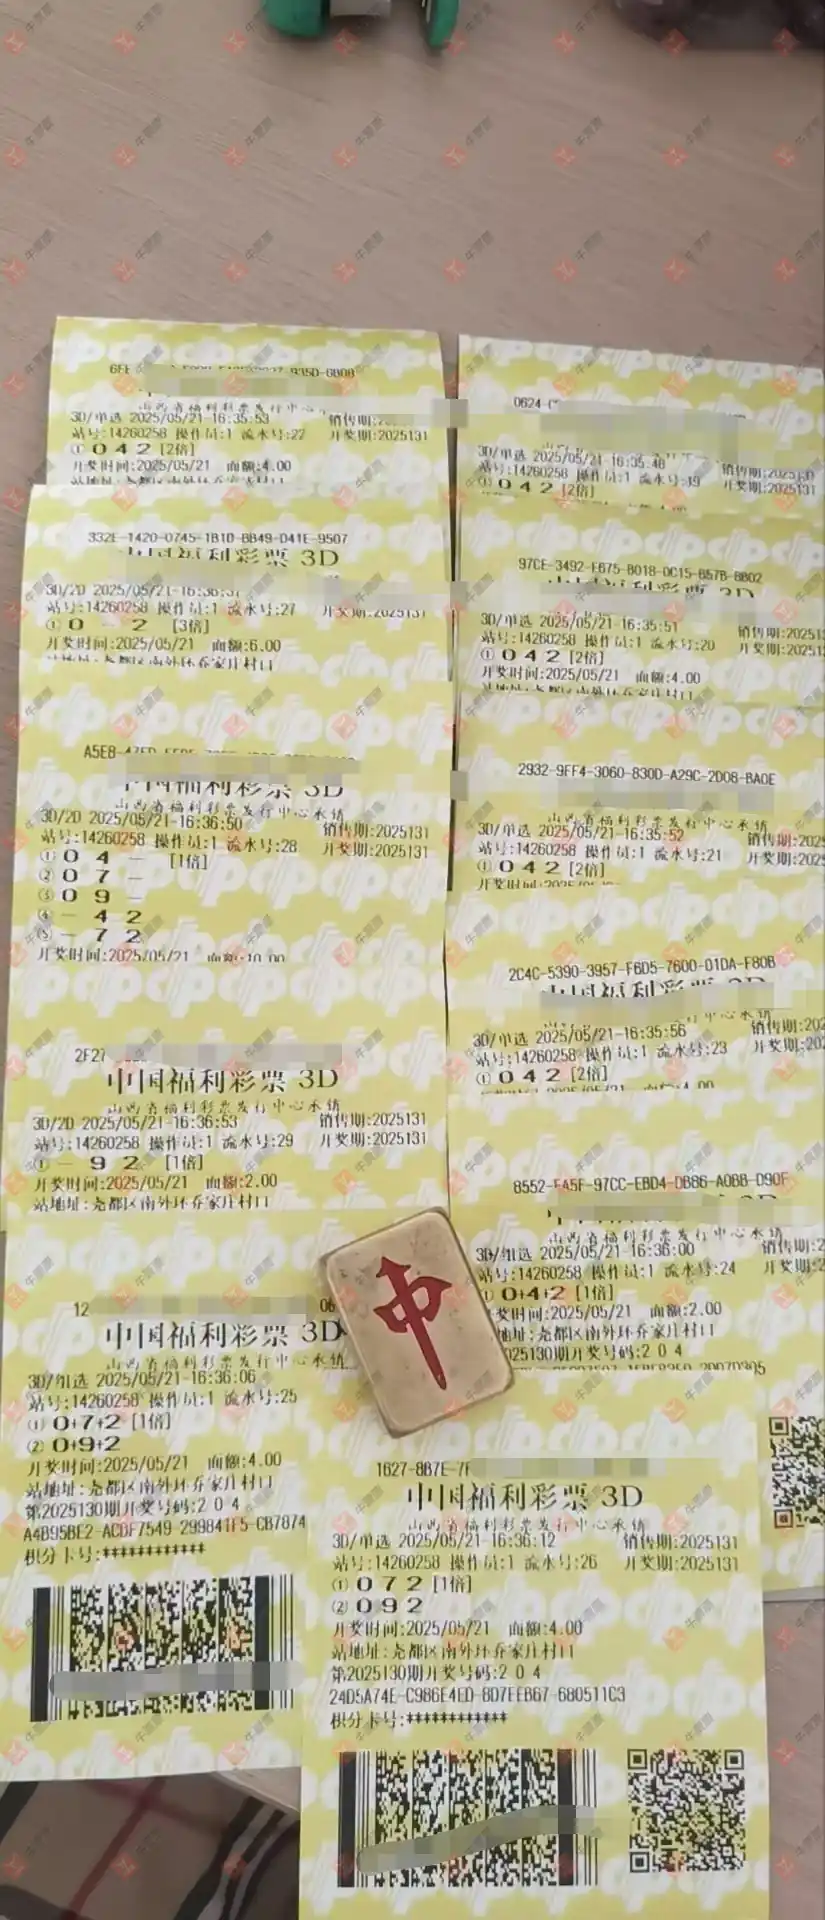 山西省福利彩票发行中心
3D/单选 2025/05/21-16:35:53 销售期:
站号:14260258 操作员:1 流水号:22 开奖期:2025131
① 0 4 2 [2倍]
开奖时间:2025/05/21 面额:4.00
332E-1420-0745-1B10-BB49-D41E-9507
中国福利彩票 3D
3D/2D 2025/05/21-16:36:37
站号:14260258 操作员:1 流水号:27 开奖期:2025131
① 0 - 2 [3倍]
开奖时间:2025/05/21 面额:6.00
站地址:尧都区南外环乔家庄村口
中国福利彩票 3D
山西省福利彩票发行中心承销
3D/2D 2025/05/21-16:36:50 销售期:2025131
站号:14260258 操作员:1 流水号:28 开奖期:2025131
① 0 4 - [1倍]
② 0 7 -
③ 0 9 -
④ - 4 2
⑤ - 7 2
开奖时间:2025/05/21 面额:10.00
2F27
中国福利彩票 3D
山西省福利彩票发行中心承销
3D/2D 2025/05/21-16:36:53 销售期:2025131
站号:14260258 操作员:1 流水号:29 开奖期:2025131
① - 9 2 [1倍]
开奖时间:2025/05/21 面额:2.00
站地址:尧都区南外环乔家庄村口
12 06
中国福利彩票 3D
山西省福利彩票发行中心承销
3D/组选 2025/05/21-16:36:06
站号:14260258 操作员:1 流水号:25
① 0+7+2 [1倍]
② 0+9+2
开奖时间:2025/05/21 面额:4.00
站地址:尧都区南外环乔家庄村口
第2025130期开奖号码:2 0 4
A4B95BE2-ACDF7549-299841F5-CB7874
积分卡号:************
0624
3D/单选 2025/05/21-16:35:48 销售期:
站号:14260258 操作员:1 流水号:19 开奖期:2025131
① 0 4 2 [2倍]
97CE-3492-E675-8018-0C15-657B-8B02
中国福利彩票 3D
3D/单选 2025/05/21-16:35:51 销售期:2025
站号:14260258 操作员:1 流水号:20 开奖期:2025
① 0 4 2 [2倍]
开奖时间:2025/05/21 面额:4.00
站地址:尧都区南外环乔家庄村口
2932-9FF4-3060-830D-A29C-2D08-BA0E
山西省福利彩票发行中心承销
3D/单选 2025/05/21-16:35:52 销售期:2025
站号:14260258 操作员:1 流水号:21 开奖期:2025
① 0 4 2 [2倍]
2C4C-5390-3957-F6D5-7600-01DA-F80B
中国福利彩票 3D
3D/单选 2025/05/21-16:35:56 销售期:202
站号:14260258 操作员:1 流水号:23 开奖期:202
① 0 4 2 [2倍]
8552-FA5F-97CC-EBD4-DB86-A0BB-D90F
山西省福利彩票发行中心承销
3D/组选 2025/05/21-16:36:00 销售期:2
站号:14260258 操作员:1 流水号:24 开奖期:2
① 0+4+2 [1倍]
开奖时间:2025/05/21 面额:2.00
站地址:尧都区南外环乔家庄村口
2025130期开奖号码:2 0 4
中
1627-8B7E-7F
中国福利彩票 3D
山西省福利彩票发行中心承销
3D/单选 2025/05/21-16:36:12 销售期:2025131
站号:14260258 操作员:1 流水号:26 开奖期:2025131
① 0 7 2 [1倍]
② 0 9 2
开奖时间:2025/05/21 面额:4.00
站地址:尧都区南外环乔家庄村口
第2025130期开奖号码:2 0 4
24D5A74E-C986E4ED-8D7EEB67-680511C3
积分卡号:************